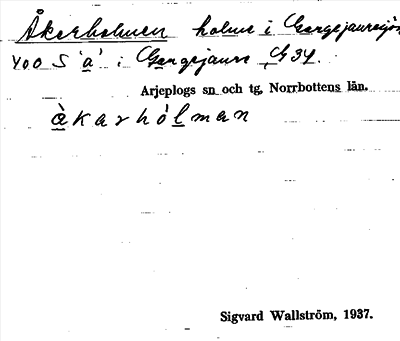 Åkerholmen holme i Gargejauresjön
400 S 'a' i Gargejaure G34.
Arjeplogs sn och tg, Norrbottens län.
àkarhólman
Sigvard Wallström, 1937.